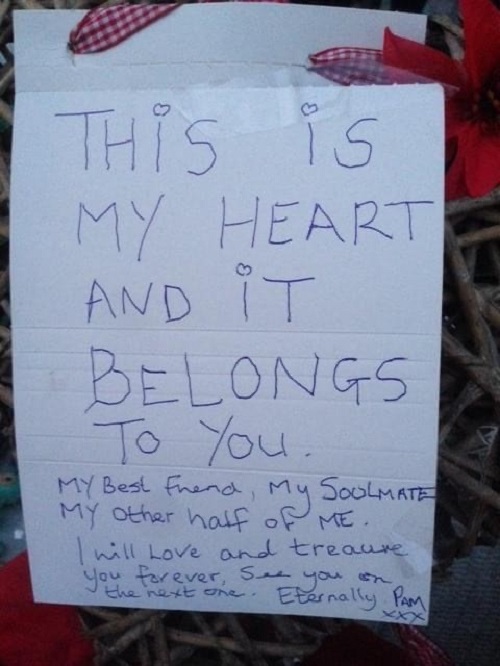 THiS iS
MY HEART
AND iT
BELONGS
To You.
MY Best friend, My SOULMATE
MY other half of ME.
I will Love and treasure
you forever, See you on
the next one. Eternally Pam
xxx